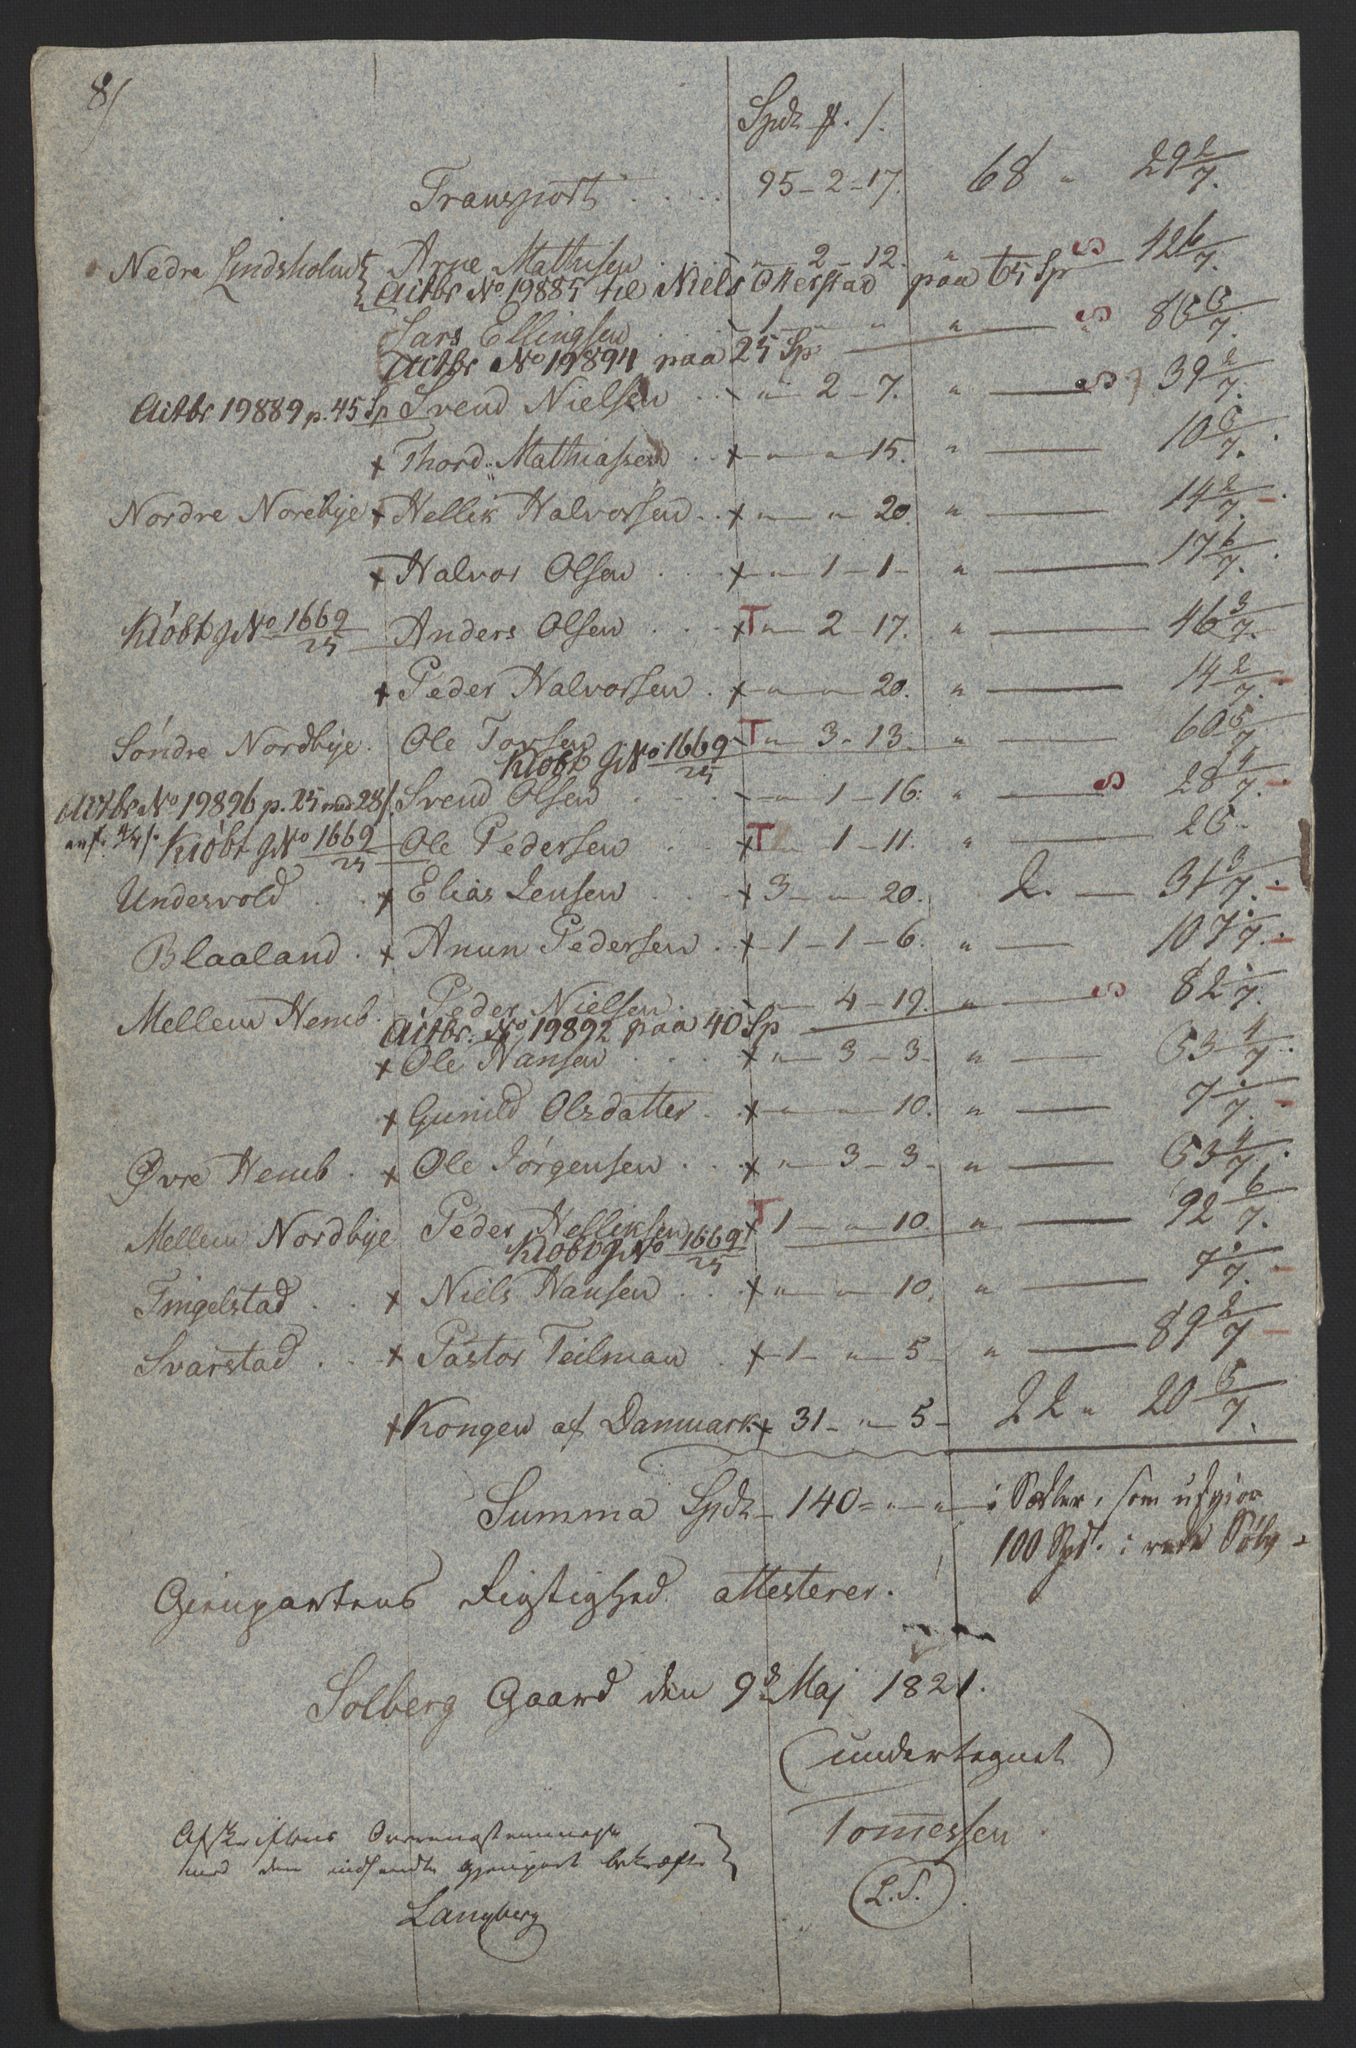 8/
Spdr # /.
Transport . . . . 95 - 2 - 17. 68 " 29 2/7.
Nedre Lindsholm { Arne Mathisen . . . " - 2 - 12. " S 42 6/7.
Actbr No 19885 til Niels Otterstad paa 65 Sp
Lars Ellingsen . . . 1 - " - " " S 85 5/7.
Actbr No 19894 paa 25 Sp
Actbr 19889 p. 45 Sp Svend Nielsen . . " - 2 - 7. " S 39 2/7.
x Thord Mathiassen . . x " - " - 15. " 10 5/7.
Nordre Norebye x Hellik Halvorsen . . x " - " - 20. " 14 2/7.
x Halvor Olsen . . . x " - 1 - 1 - " 17 6/7.
Kiøbt JNo 1669/25 Anders Olsen . . . x T " - 2 - 17. " 46 3/7.
x Peder Halvorsen . x " - " - 20. " 14 2/7.
Søndre Nordbye . Ole Torsen T " - 3 - 13. " 60 5/7
Kiøbt JNo 1669/25
Actbr No 19896 p. 25 med 28/. Svend Olsen . . . " - 1 - 16. " S 28 4/7.
Kiøbt JNo 1669/25 Ole Pedersen . . x T 1 - 11. " 25 -
Undersvold . . x Elias Jensen . . . x 3 - " - 20. 2. 31 3/7.
Blaaland . x Anun Pedersen . . x 1 - 1 - 6. " 107 "/7.
Mellem Hemb . Peder Nielsen . . " - 4 - 19. " S 82 "/7.
Actbr. No 19892 paa 40 Sp
x Ole Hansen . . . x " - 3 - 3 - " 53 4/7.
x Gunild Olsdatter . . x " - " - 10. " 7 "/7.
Øvre Hemb . x Ole Jørgensen . . . x " - 3 - 3 - " 53 4/7.
Mellem Nordbye Peder Helliksen x T 1 - " - 10. " 92 6/7.
Kiøbt JNo 1669/25
Tingelstad . . x Niels Hansen . . . x " - " - 10. " 7 "/7.
Svarstad . . x Pastor Teilman . x 1 - " - 5 - " 89 2/7
x Kongen af Danmark. x 31 - " - 5 - 22 " 20 5/7.
Summa Spdr - 140 = " - " - i Sedler, som udgiør
100 Spd. i rede Sølv -
Gienpartens Rigtighed attesterer.
Solberg Gaard den 9d Maj 1821.
(undertegnet)
Tomessen.
L.S.
Afskriftens Overensstemmelse
med den indsendte Gjenpart bekræfter }
Langberg